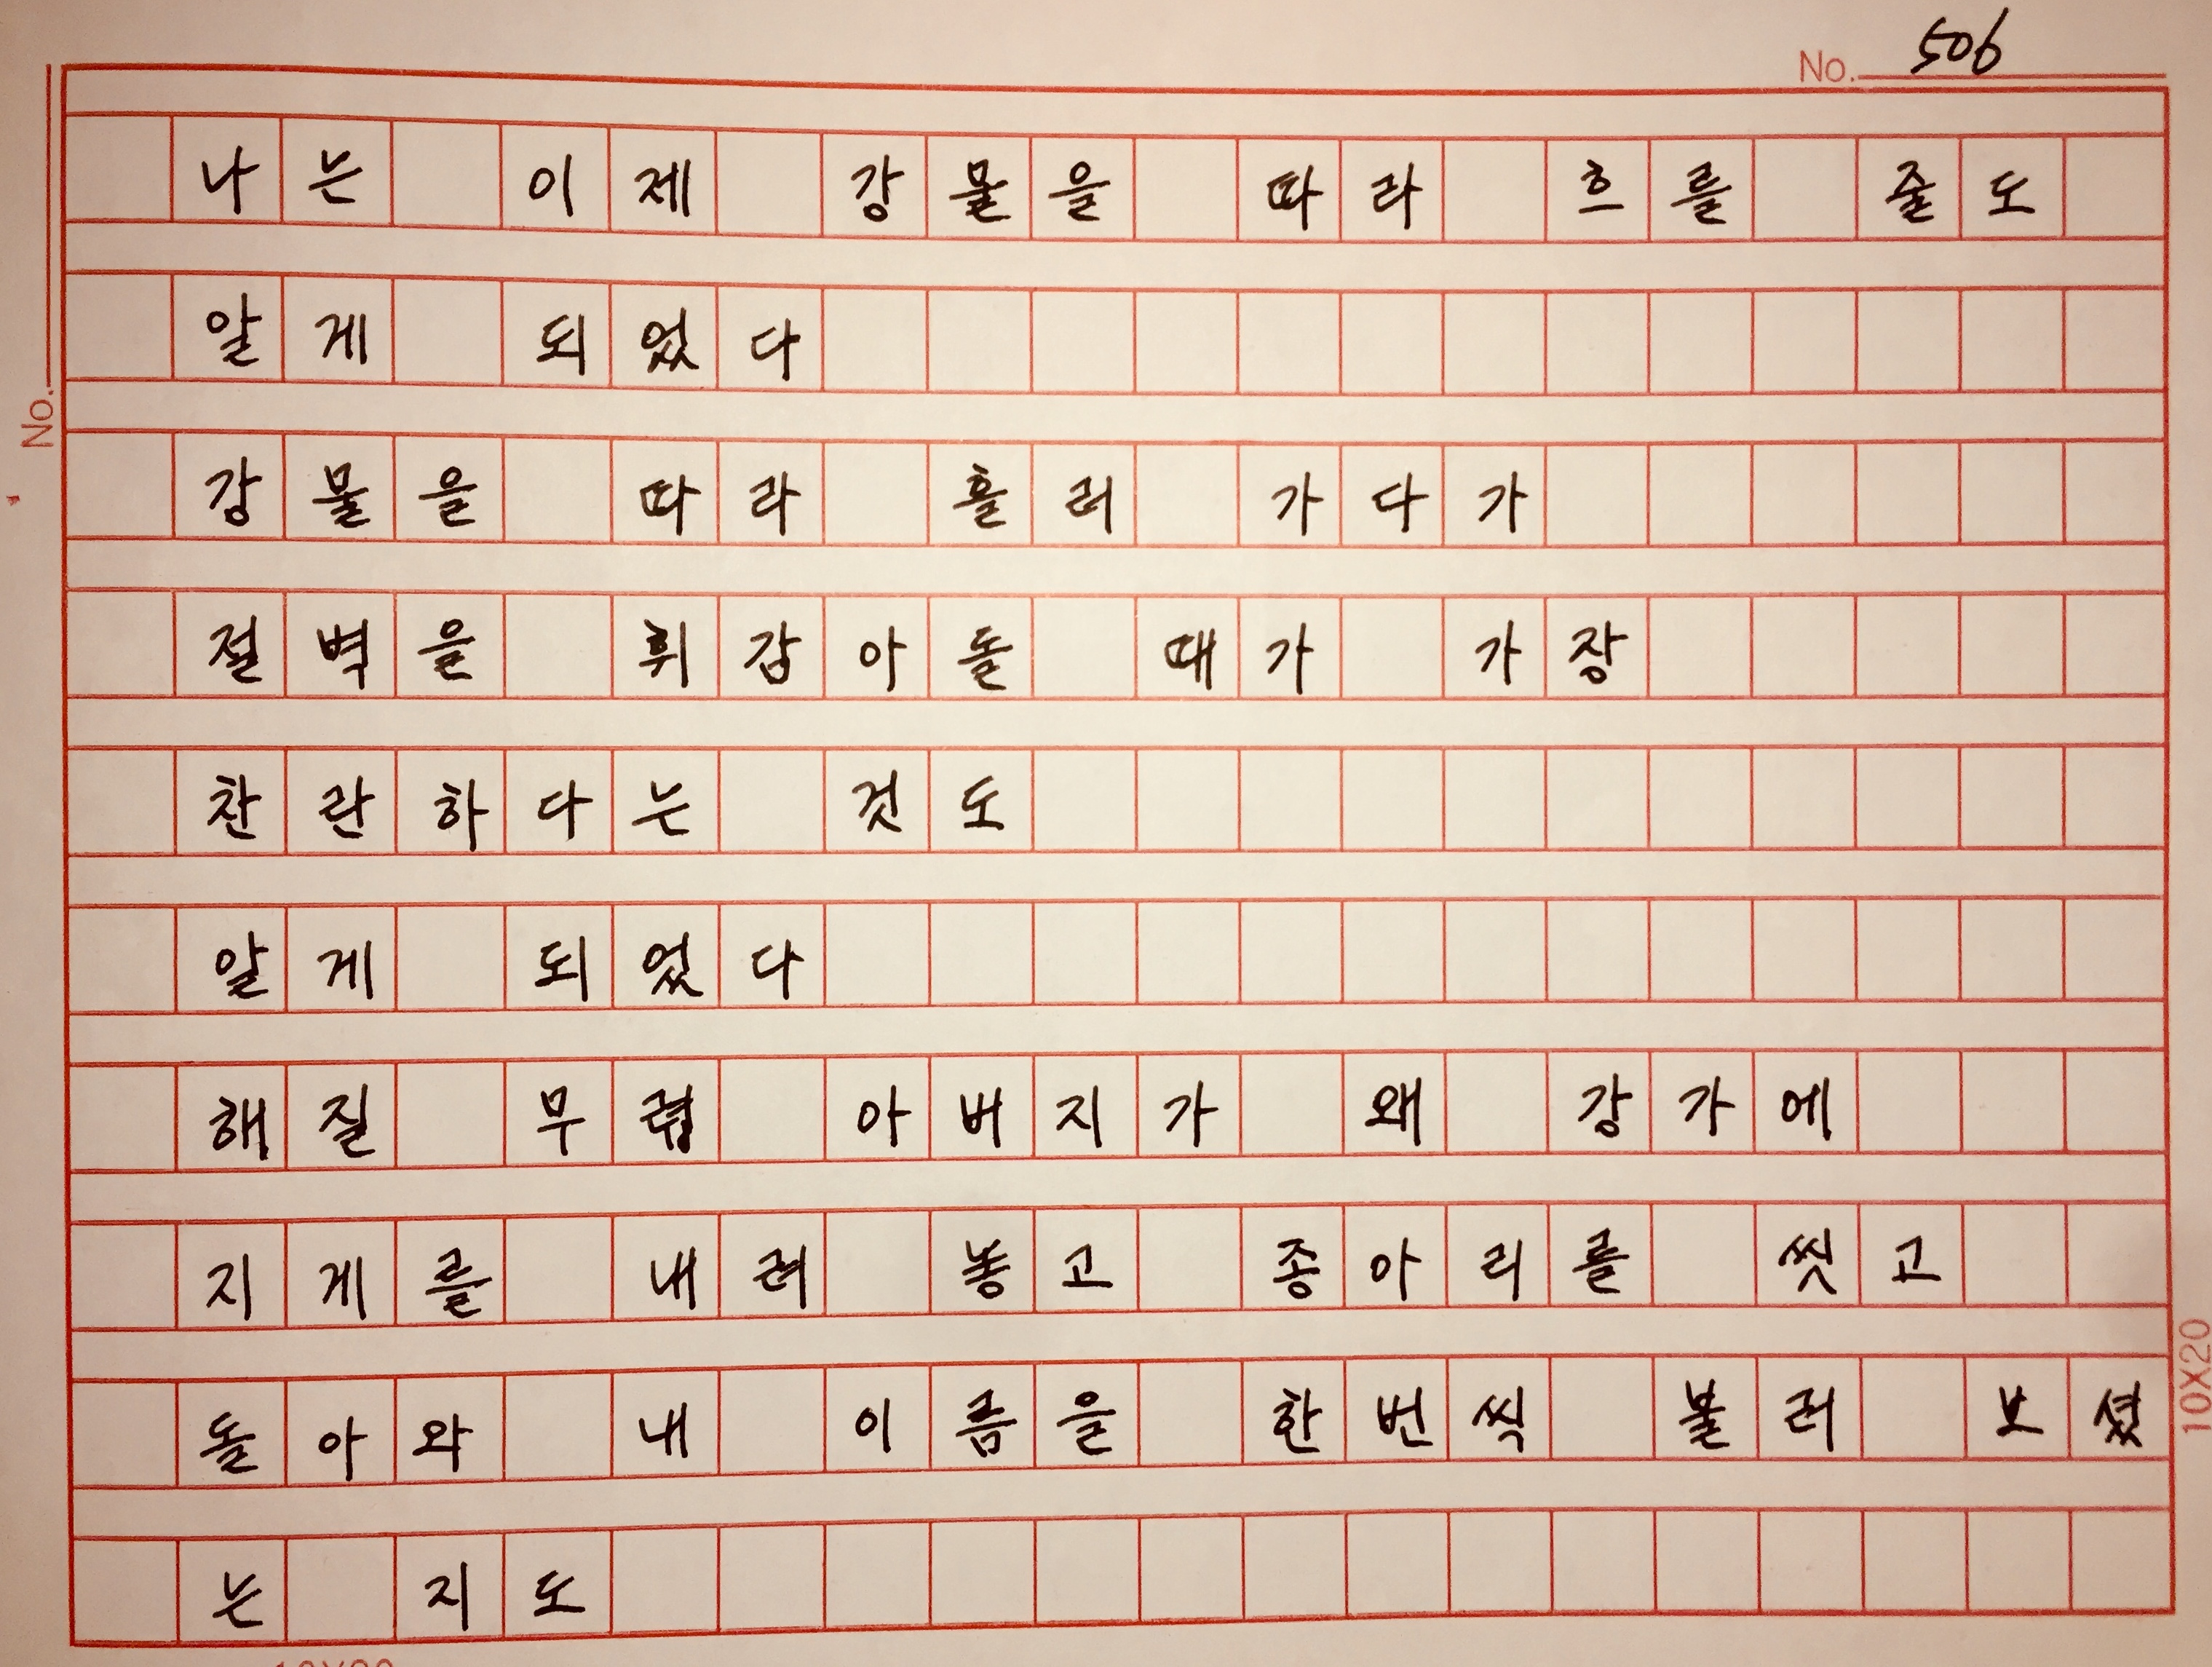 No. 506
나는 이제 강물을 따라 흐를 줄도
알게 되었다
강물을 따라 흘러 가다가
절벽을 휘감아돌 때가 가장
찬란하다는 것도
알게 되었다
해질 무렵 아버지가 왜 강가에
지게를 내려 놓고 종아리를 씻고
돌아와 내 이름을 한번씩 불러 보셨
는 지도
No.
10X20